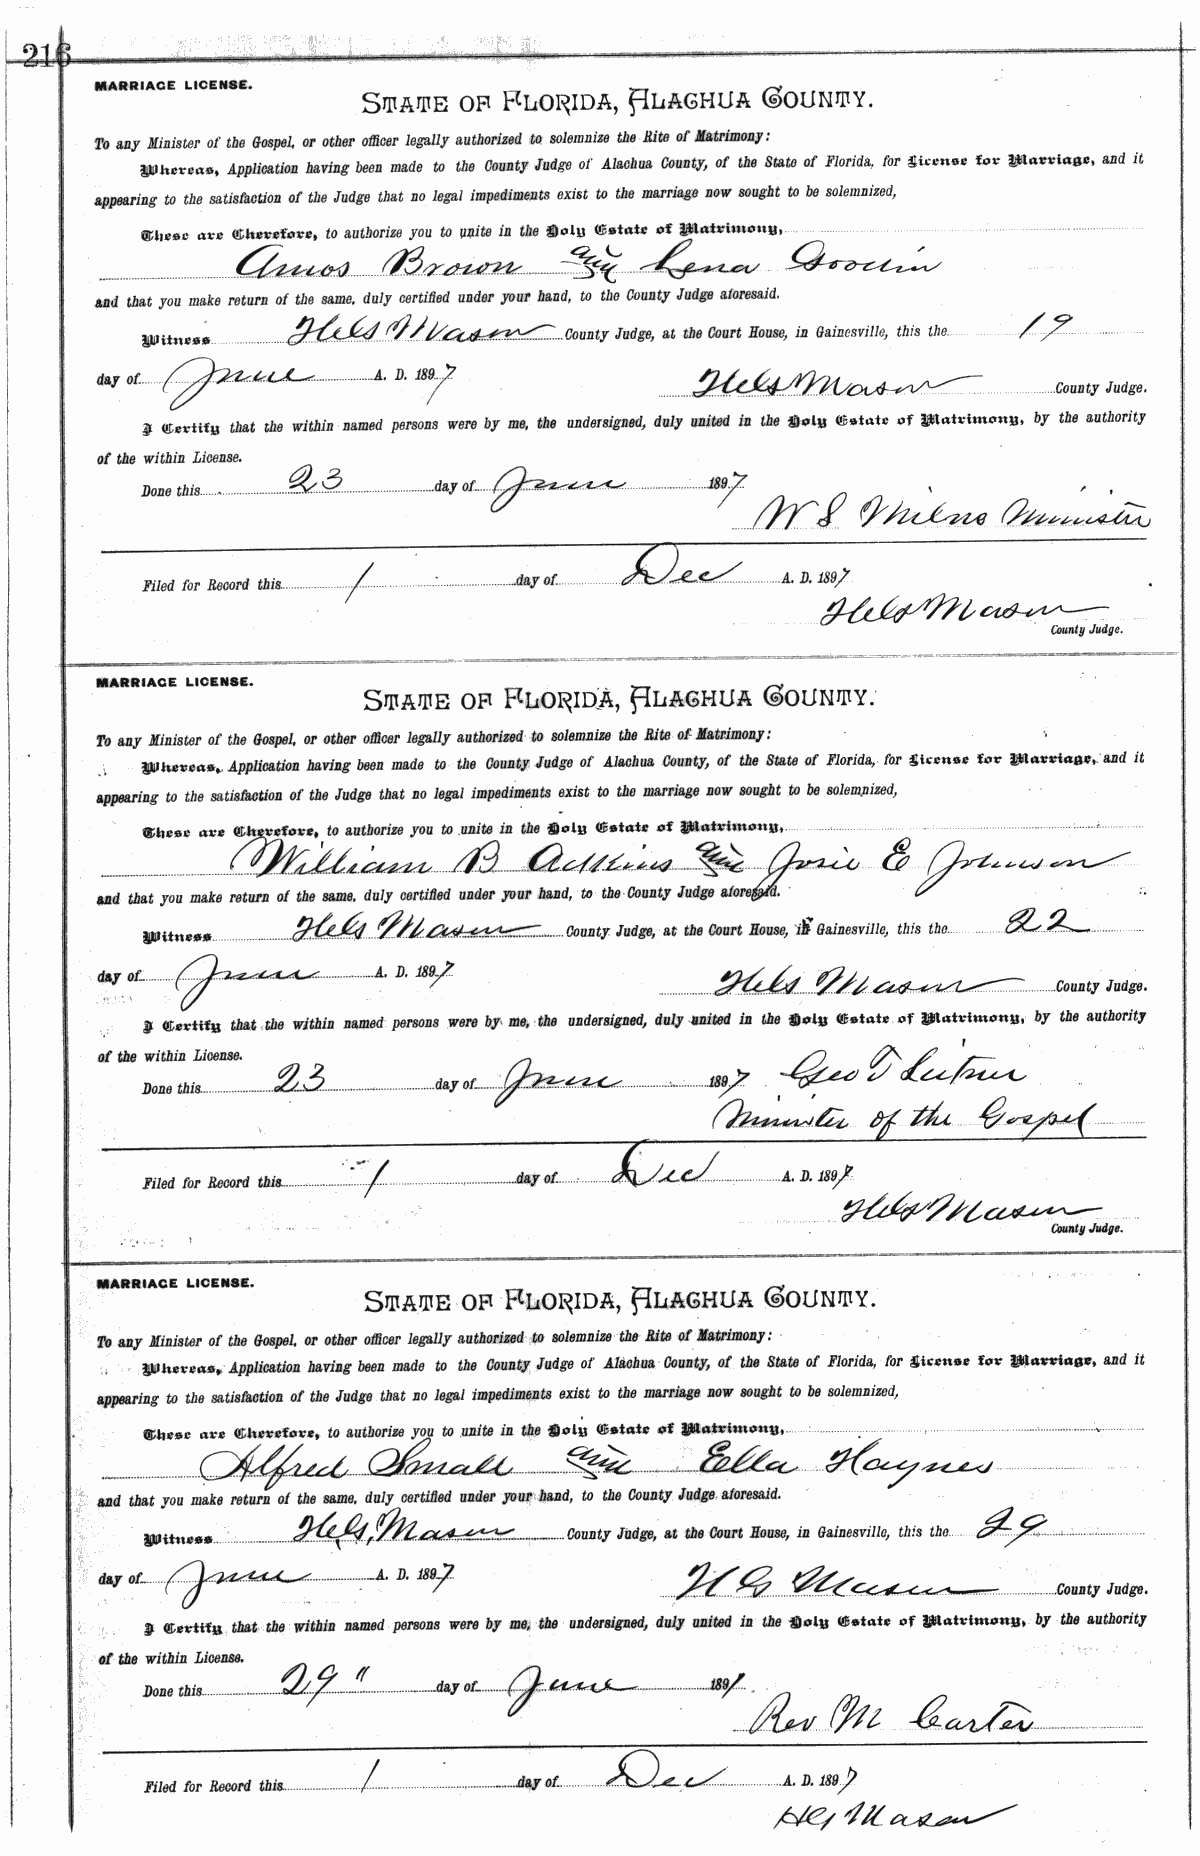 216
MARRIAGE LICENSE.
STATE OF FLORIDA, ALACHUA COUNTY.
To any Minister of the Gospel, or other officer legally authorized to solemnize the Rite of Matrimony:
Whereas, Application having been made to the County Judge of Alachua County, of the State of Florida, for License for Marriage, and it
appearing to the satisfaction of the Judge that no legal impediments exist to the marriage now sought to be solemnized,
These are Therefore, to authorize you to unite in the Holy Estate of Matrimony,
Amos Brown and Lena Goodin
and that you make return of the same, duly certified under your hand, to the County Judge aforesaid.
Witness Mason County Judge, at the Court House, in Gainesville, this the 19
day of June A. D. 1897 Mason County Judge.
I Certify that the within named persons were by me, the undersigned, duly united in the Holy Estate of Matrimony, by the authority
of the within License.
Done this 23 day of June 1897
W S Milns Minister
Filed for Record this 1 day of Dec A. D. 1897
Mason
County Judge.
MARRIAGE LICENSE.
STATE OF FLORIDA, ALACHUA COUNTY.
To any Minister of the Gospel, or other officer legally authorized to solemnize the Rite of Matrimony:
Whereas, Application having been made to the County Judge of Alachua County, of the State of Florida, for License for Marriage, and it
appearing to the satisfaction of the Judge that no legal impediments exist to the marriage now sought to be solemnized,
These are Therefore, to authorize you to unite in the Holy Estate of Matrimony,
William B Adkins and Josie E Johnson
and that you make return of the same, duly certified under your hand, to the County Judge aforesaid.
Witness Mason County Judge, at the Court House, in Gainesville, this the 22
day of June A. D. 1897 Mason County Judge.
I Certify that the within named persons were by me, the undersigned, duly united in the Holy Estate of Matrimony, by the authority
of the within License.
Done this 23 day of June 1897 Geo T Leitner
Minister of the Gospel
Filed for Record this 1 day of Dec A. D. 1897
Mason
County Judge.
MARRIAGE LICENSE.
STATE OF FLORIDA, ALACHUA COUNTY.
To any Minister of the Gospel, or other officer legally authorized to solemnize the Rite of Matrimony:
Whereas, Application having been made to the County Judge of Alachua County, of the State of Florida, for License for Marriage, and it
appearing to the satisfaction of the Judge that no legal impediments exist to the marriage now sought to be solemnized,
These are Therefore, to authorize you to unite in the Holy Estate of Matrimony,
Alfred Small and Ella Haynes
and that you make return of the same, duly certified under your hand, to the County Judge aforesaid.
Witness Mason County Judge, at the Court House, in Gainesville, this the 29
day of June A. D. 1897 H G Mason County Judge.
I Certify that the within named persons were by me, the undersigned, duly united in the Holy Estate of Matrimony, by the authority
of the within License.
Done this 29" day of June 189
Rev M Carter
Filed for Record this 1 day of Dec A. D. 1897
HG Mason